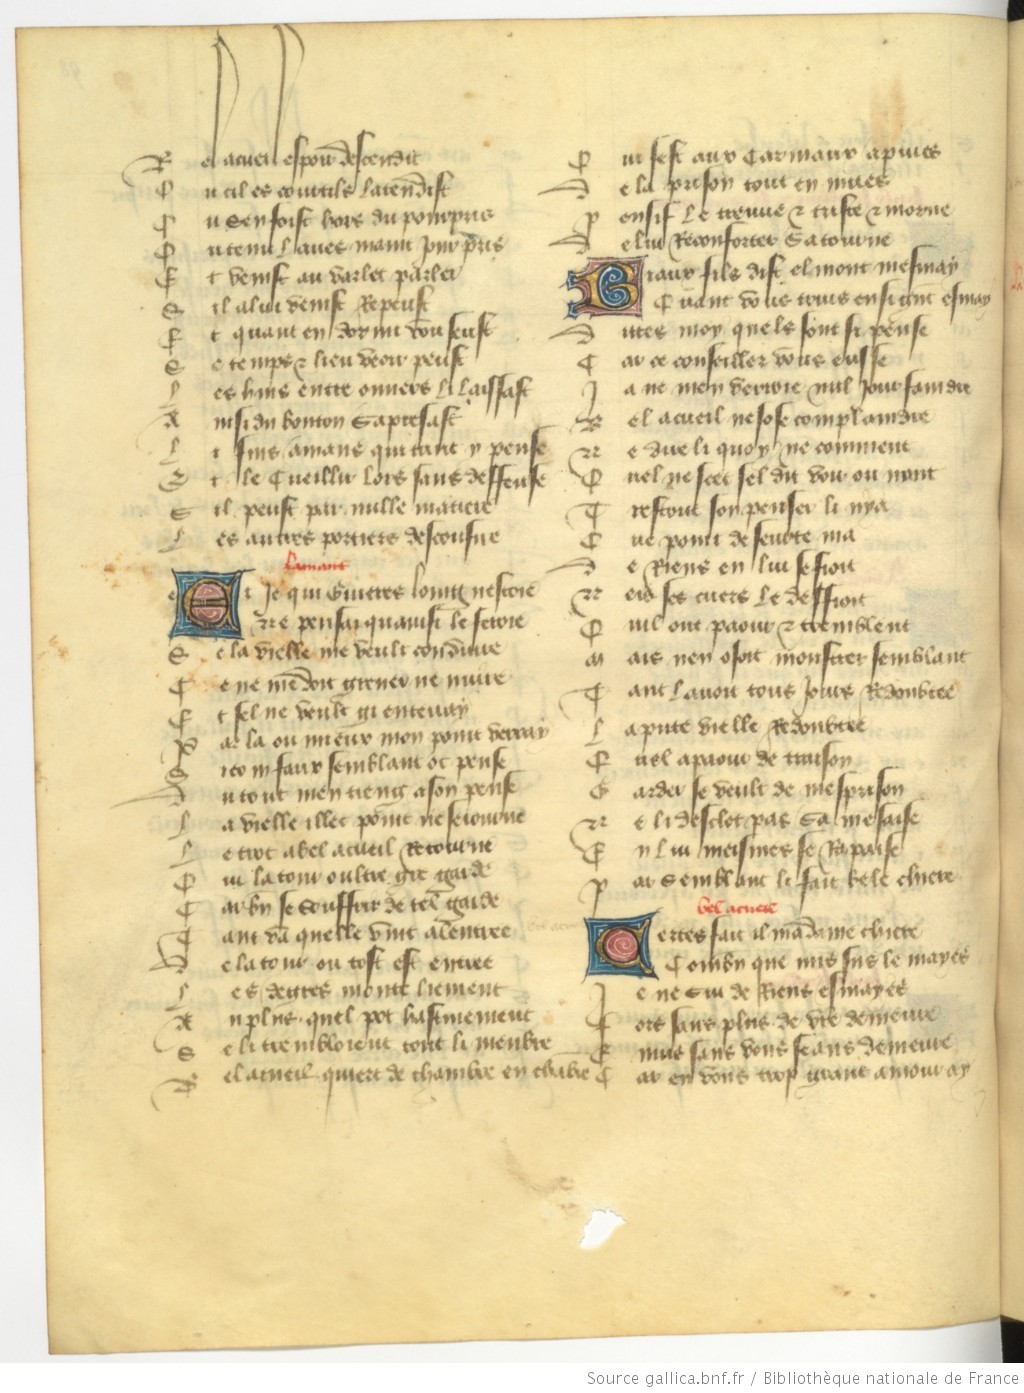 Bel acueil espoir descendit
Ou cil es courtils latendist
Ou sen soist hors du pourpris
Ou tenu l aves main pourpris
Et venist au varlet parler
Sil a lui venist Repeust
Et quant endormi vou seust
Se temps et lieu veoir peust
Les huis entre ouvers li laissast
Ainsi du bouton sapressast
Li fins amans qui tant y pense
Et le Cueillir lors sans deffense
Sil peust par nulle matiere
Les autres portiers desconfire
Lamant
Et Je qui Guieres loing nestoie
Me pensai quainsi le feroie
Se la vielle me veult conduire
Ce ne me doit grever ne nuire
Et sel ne veult gi enterray
Par la ou mieux mon point verray
Si com faux semblant ot pense
Du tout men tieng a son pense
La vielle illec point ne seiourne
Le trot a bel acueil Retourne
Qui la tour oultre gre garde
Car bien se souffrir de tel garde
Tant va quelle vint a lentree
De la tour ou tost est entree
Les degres monte liement
Au plus quel pot hastivement
Se li trembloient tout li menbre
Bel acueil quiert de chambre en chambre
Qui sest aux Carniaux apuies
De la prison tout en nuies
Pensif le treuve et triste et morne
De lui Reconforter sa tourne
Biaux fils dist el mont mesmay
Quant vous truis en si grant esmay
Dittes moy quels sont si pense
Car ce conseiller vous en sse
Ja ne men verroie nul Jour faindre
Bel acueil ne sose complaindre
Ne dire li quoy ne comment
Quel ne scet sel dit voir ou ment
Trestout son penser li nya
Que point de seurte ni a
De Riens en lui se fioit
Neis ses cuers le deffioit
Quil ont paour et tremblent
Mais nen osoit monstrer semblant
Tant lavoit tous Jours Redoubtee
La pute vielle Redoubtee
Quel a paour de traison
Garder se veult de mesprison
Ne li desclot pas sa mesaise
En lui meismes se Rapaise
Par semblant li fait bele chiere
bel acueil
Certes fait il ma dame chiere
Combien que mis sus le mayes
Je ne sui de Riens esmayes
Fors sans plus de vostre demeure
Enuis sans vous seans demeure
Car en vous trop grant amour ay